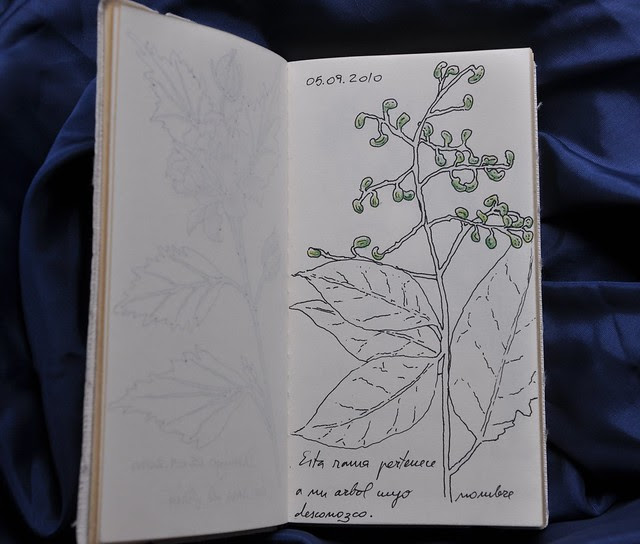 05.09.2010
Esta rama pertenece
a un arbol cuyo nombre
desconozco.